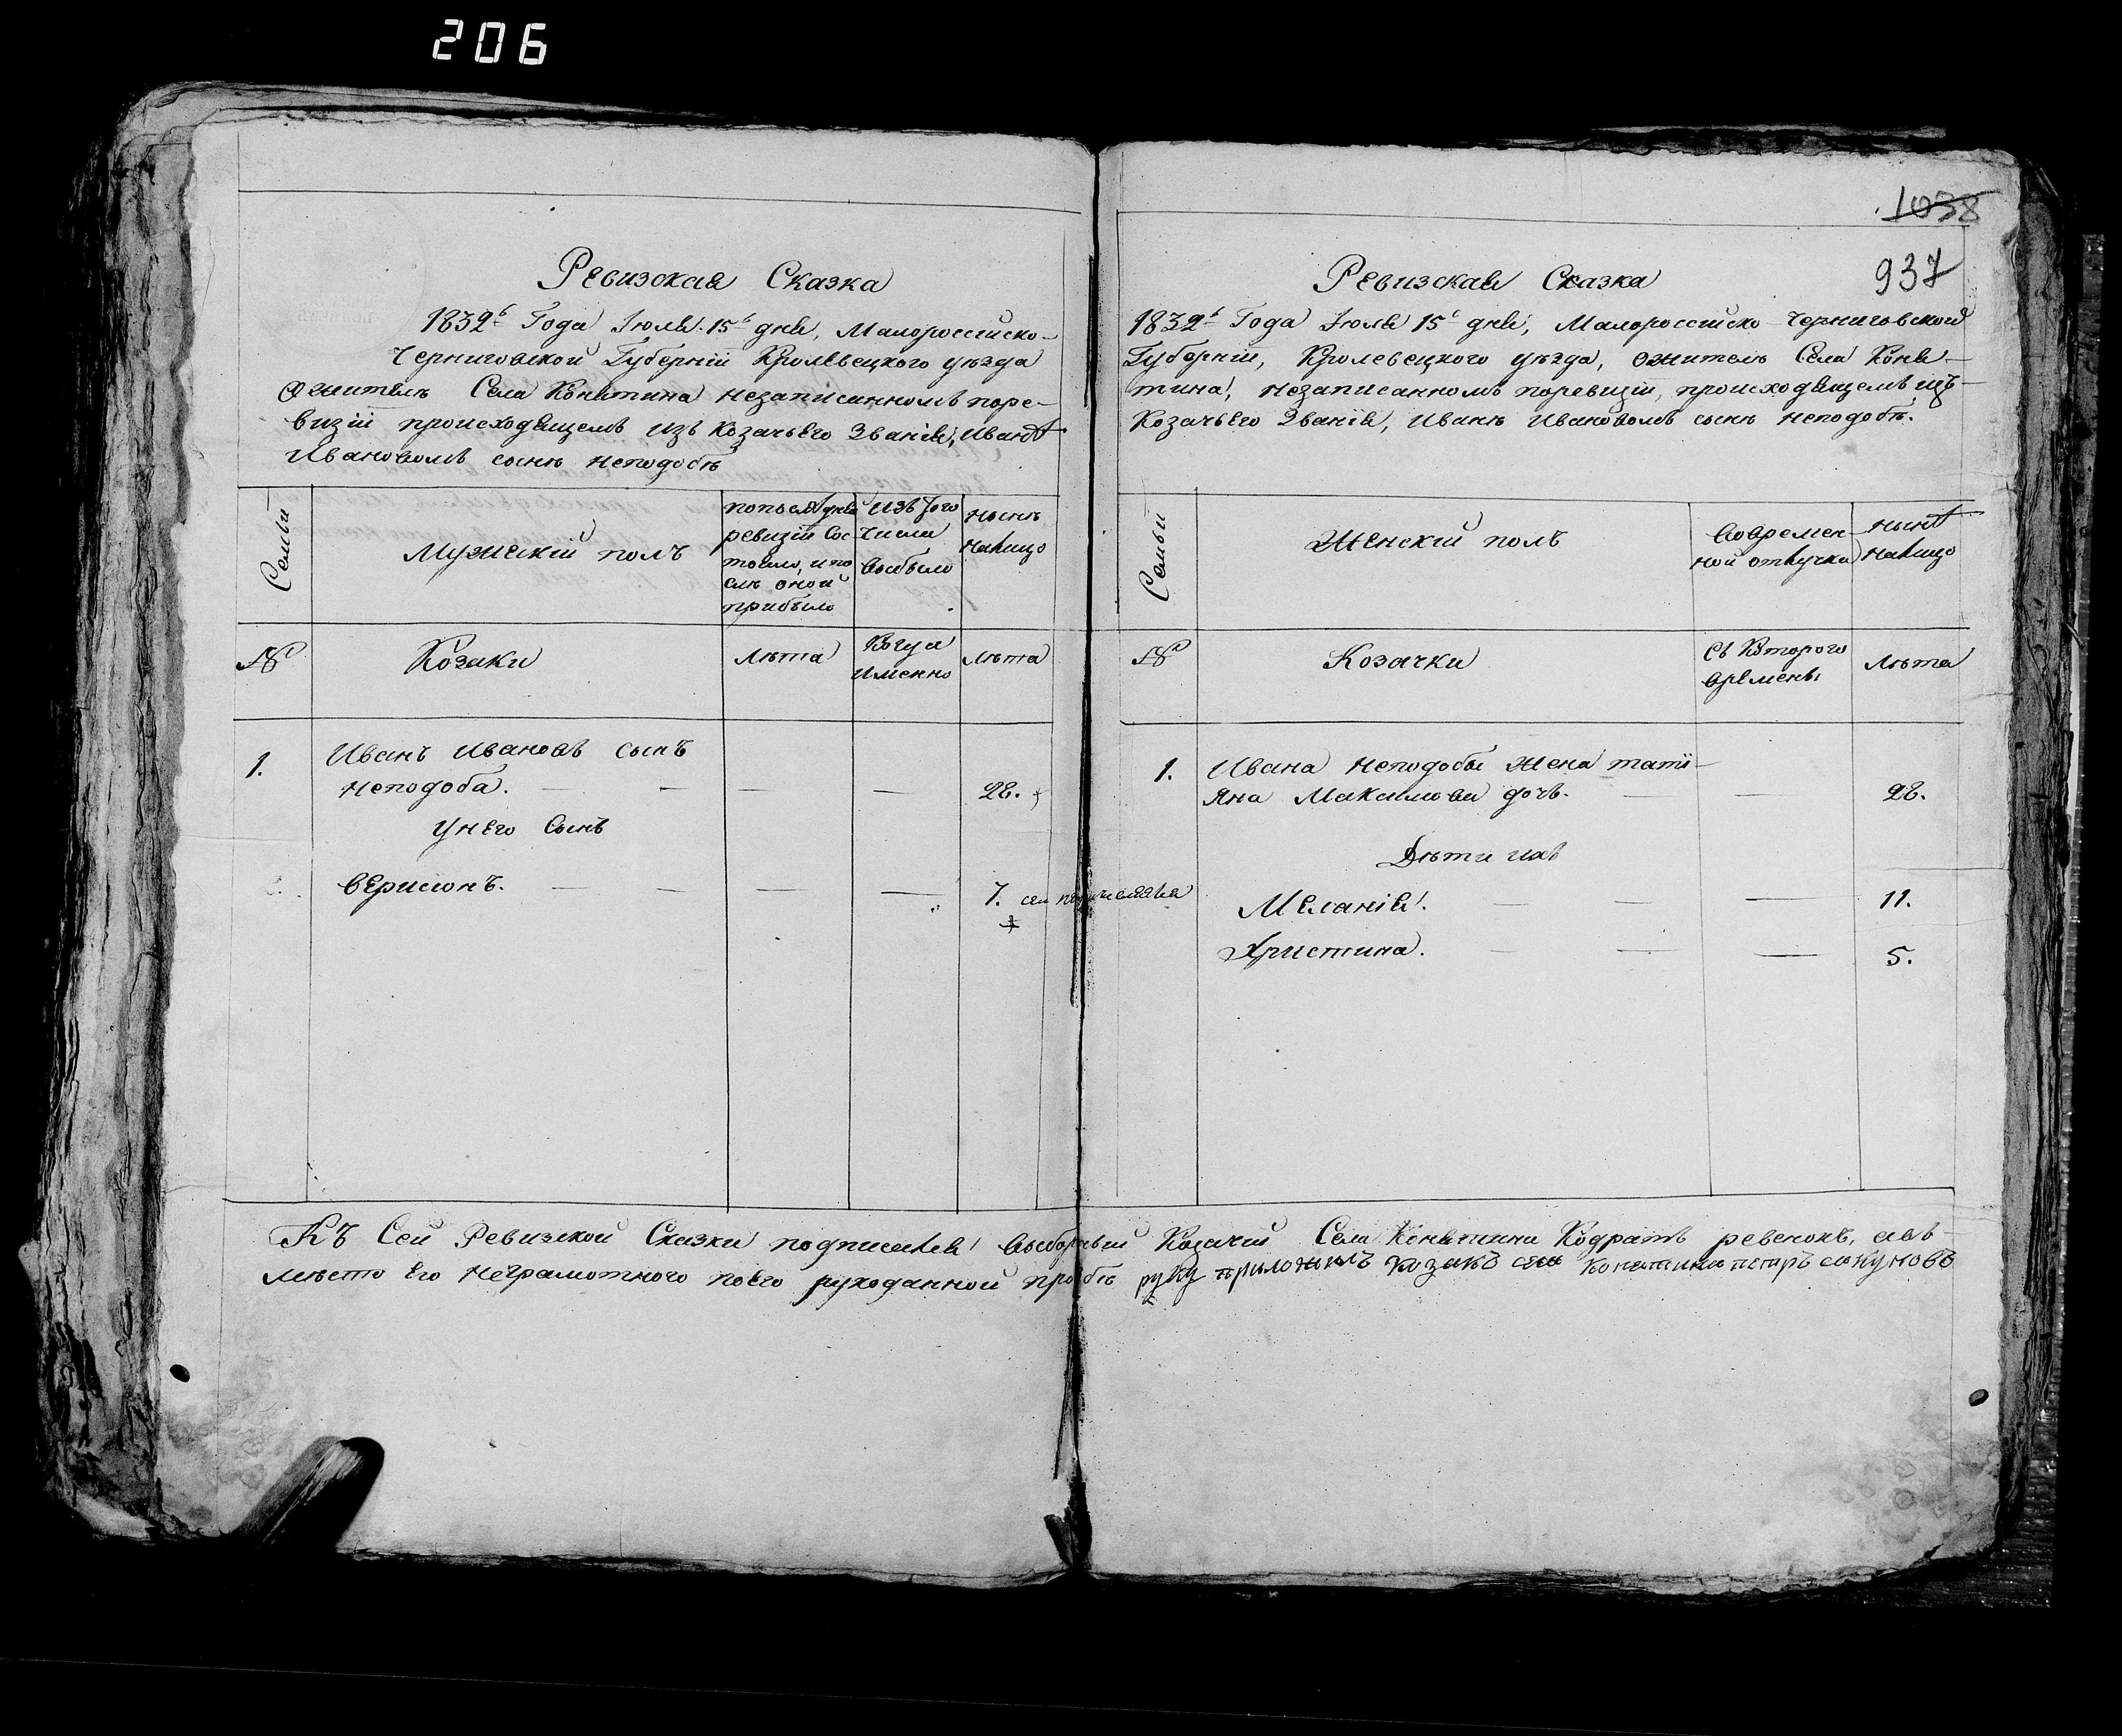 206
Ревизская Сказка
1832г Года Июля 15г дня, Малороссийско-
Черниговской Губерніи Кролевецкого уезда
О жителѣ Села Конятина незаписанномъ поре-
визіи происходящемъ изъ козачьего званія, Иванѣ
Ивановомъ сынѣ Неподобѣ
Семьи
Мужескій полъ
попоследней
ревизіи сос-
тояло, и по
слѣ оной
прибыло
изъ того
числа
выбыло
нынѣ
налицо
№
Козаки
Лѣта
Когда
именно
Лѣта
1.
Иванъ Ивановъ сынъ
Неподоба.
28.
унего сынъ
7.
1038
937
Ревизская Сказка
1832г Года Июля 15г дня, Малороссийско Черниговской
Губерніи, Кролевецкого уезда, ожителѣ Села Коня-
тина, незаписанномъ поревизіи, происходящемъ изъ
Козачьего Званія, Иванѣ Ивановомъ сынѣ Неподобѣ.
Семьи
Женскій полъ
Вовремен-
ной отлучки
нынѣ
налицо
№
Козачки
Съ которого
времены
Лѣта
1.
Ивана Неподобы жена Татiі-
яна Максимова дочь.
28.
Дѣти ихъ
Меланія.
11.
Христина.
5.
Къ Сей Ревизской Сказки подписался выборный Козачий Села Конятина Кодратъ ревенокъ, авъ-
мѣсто его неграмотного поего рукоданной прозбѣ руку приложилъ козакъ села Конятина петръ